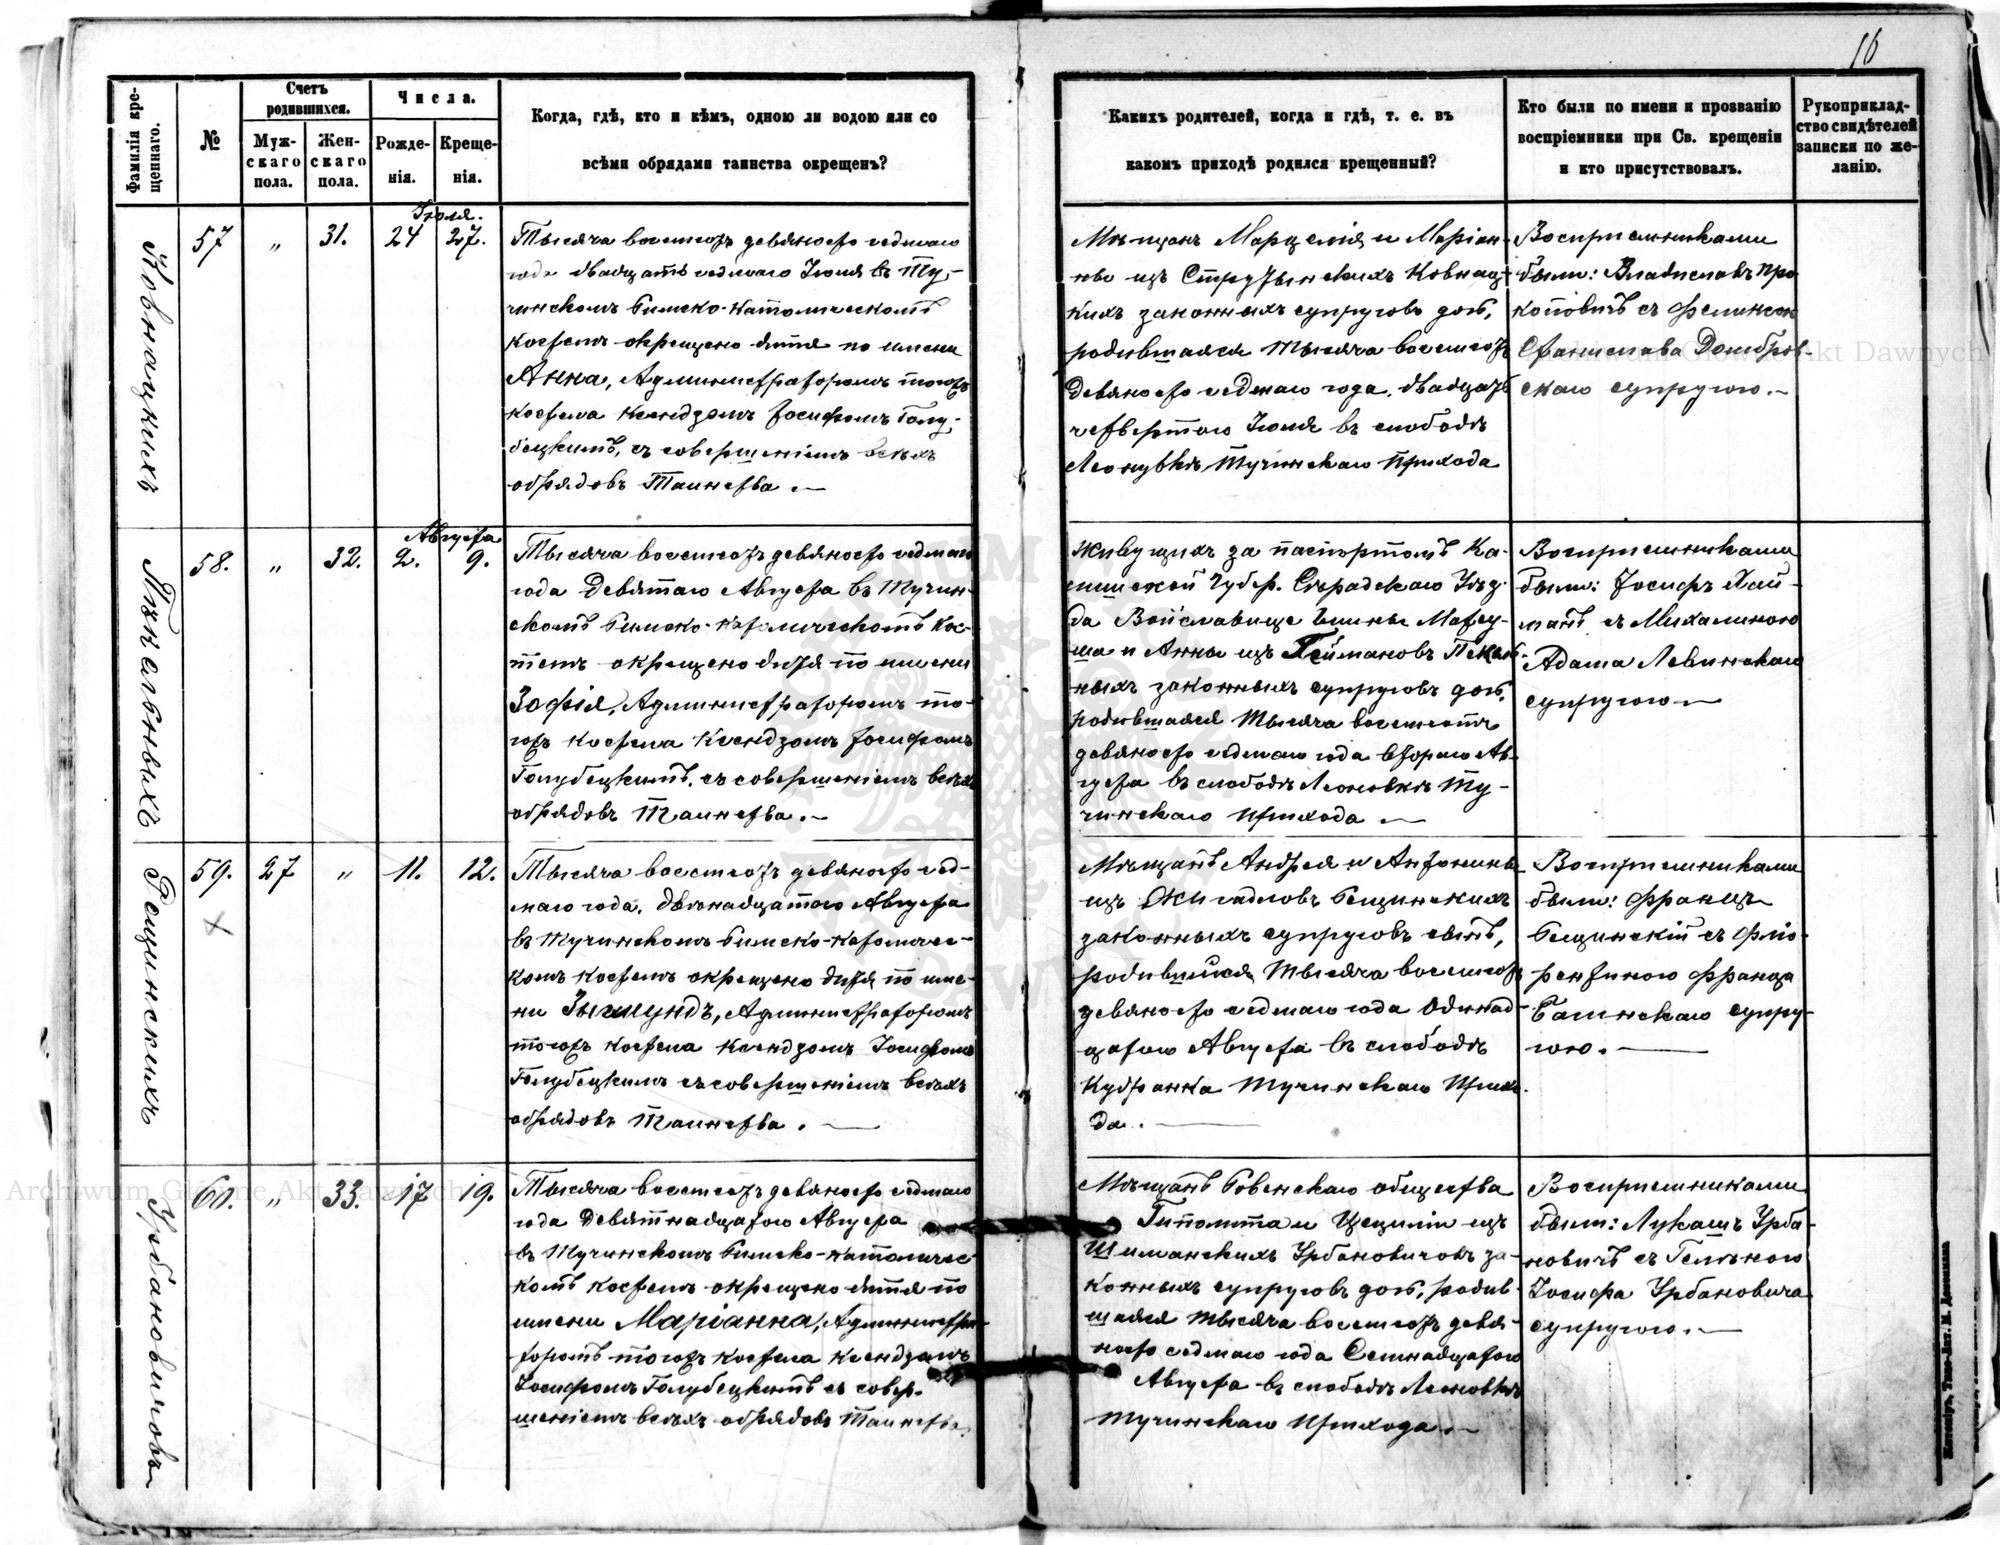 16
Фамилія кре-
щеннаго.
№
Счетъ
родившихся.
Муж-
скаго
пола.
Жен-
скаго
пола.
Числа.
Рожде-
нія.
Креще-
нія.
Когда, гдѣ, кто и кѣмъ, одною ли водою или со
всѣми обрядами таинства окрещенъ?
Какихъ родителей, когда и гдѣ, т. е. въ
какомъ приходѣ родился крещенный?
Кто были по имени и прозванію
воспріемники при Св. крещеніи
и кто присутствовалъ.
Рукоприклад-
ство свидѣтелей
записки по же-
ланію.
Ковнацкихъ
57 „ 31. 24 Іюля. 27.
Тысяча восемсотъ девяносто седмаго
года двадцать седмаго Іюля въ Ту-
чинскомъ Римско-Католическомъ
костелѣ окрещено дитя по имени
Анна, Администраторомъ тогожъ
костела Ксендзомъ Іосифомъ Голу-
бецкимъ, съ совершеніемъ всѣхъ
обрядовъ Таинства.—
Мѣщанъ Марцелія и Маріан-
ны изъ Ковнац-
кихъ законныхъ супруговъ дочь,
родившаяся тысяча восемсотъ
девяносто седмаго года, двадцать
четвертого Іюля въ слободѣ
Леонувкѣ Тучинскаго прихода
Воспріемниками
были: Владиславъ Про
коповичъ съ Феликсою
Станислава Домбров-
скаго супругою.—
58. „ 32. 2. Августа 9.
Тысяча восемсотъ девяносто седмаго
года девятаго Августа въ Тучин-
скомъ Римско-Католическомъ кос-
телѣ окрещено дитя по имени
Зофія, Администраторомъ то-
гожъ костела Ксендзомъ Іосифомъ
Голубецкимъ, съ совершеніемъ всѣхъ
обрядовъ Таинства.—
Живущихъ за паспортомъ Ка-
лишской Губер. Сѣрадскаго Уѣз-
да гмины Матеу-
ша и Анны изъ
законныхъ супруговъ дочь,
родившаяся тысяча восемсотъ
девяносто седмаго года втораго Ав-
густа въ слободѣ Леоновкѣ Ту-
чинскаго прихода —
Воспріемниками
были: Іосифъ
съ Михалиною
Адама Левинскаго
супругою —
Рещинскихъ
59. 27 „ 11. 12.
Тысяча восемсотъ девяносто сед-
маго года, двѣнадцатого Августа
въ Тучинскомъ Римско-Католичес-
комъ костелѣ окрещено дитя по име-
ни Зыгмундъ, Администраторомъ
тогожъ костела Ксендзомъ Іосифомъ
Голубецкимъ съ совершеніемъ всѣхъ
обрядовъ Таинства. —
Мѣщанъ Андрея и Антонины
изъ Рещинскихъ
законныхъ супруговъ сынъ,
родившійся тысяча восемсотъ
девяносто седмаго года Одинад-
цатого Августа въ слободѣ
Кудранка Тучинскаго прихо-
да. —
Воспріемниками
были: Францъ
Рещинскій съ Фло-
рентиною Франца
супру-
гою. —
Урбановичовъ
60. „ 33. 17 19.
Тысяча восемсотъ девяносто седмаго
года девятнадцатого Августа
въ Тучинскомъ Римско-Католичес-
комъ костелѣ окрещено дитя по
имени Маріанна, Администра-
торомъ тогожъ костела Ксендзомъ
Іосифомъ Голубецкимъ съ совер-
шеніемъ всѣхъ обрядовъ Таинства.
Мѣщанъ Ровенскаго общества
Гиполита и Цециліи изъ
Шиманскихъ Урбановичовъ за-
конныхъ супруговъ дочь, родив-
шаяся тысяча восемсотъ девя-
носто седмаго года Семнадцатого
Августа въ слободѣ Леоновкѣ
Тучинскаго прихода.—
Воспріемниками
были: Лукашъ Урба-
новичъ съ Геленою
Іосифа Урбановича
супругою.—
Archiwum Główne Akt Dawnych
Archiwum Główne Akt Dawnych